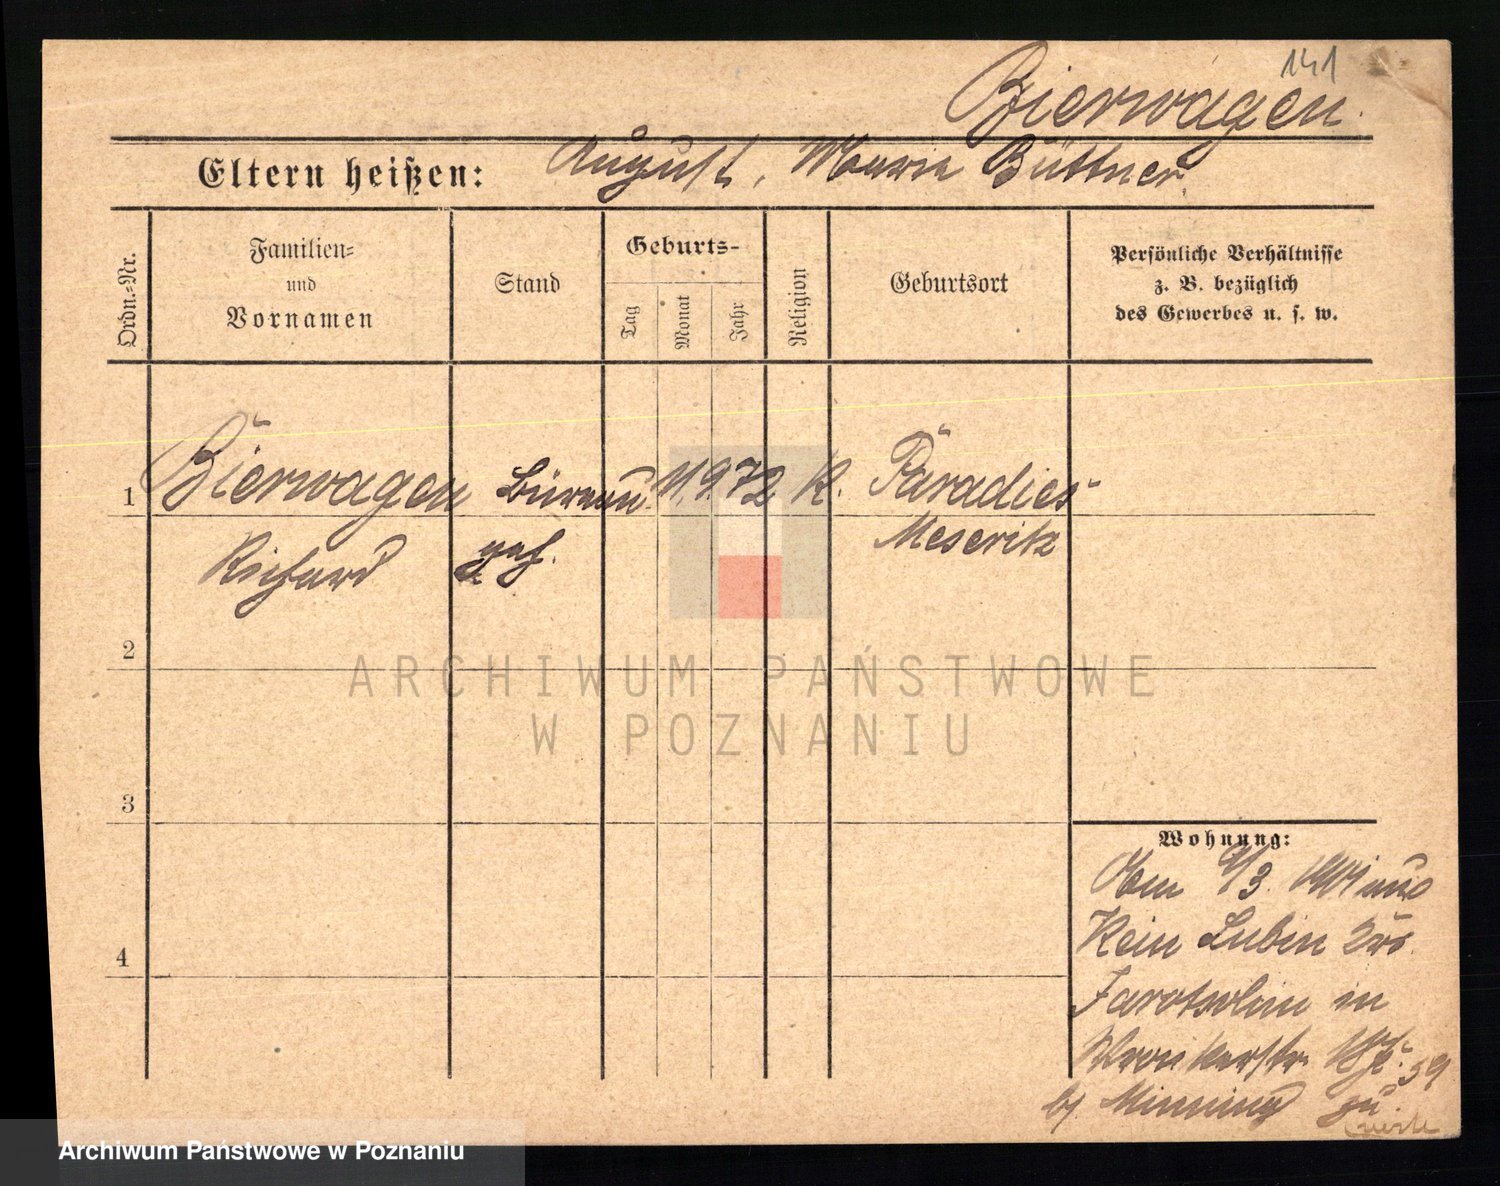 141
Bierwagen
Eltern heißen: August, Marie Büttner
Ordn.-Nr.
Familien-
und
Vornamen
Stand
Geburts-
Tag
Monat
Jahr
Religion
Geburtsort
Persönliche Verhältnisse
z. B. bezüglich
des Gewerbes u. s. w.
1 Bierwagen Büreau 11. 9. 72 K. Paradies
Richard geh. Meseritz
2
3
4
Wohnung:
/3. 1901 aus
Lubin
in
Wronkerstr.
by zu
ARCHIWUM PAŃSTWOWE
W POZNANIU
Archiwum Państwowe w Poznaniu